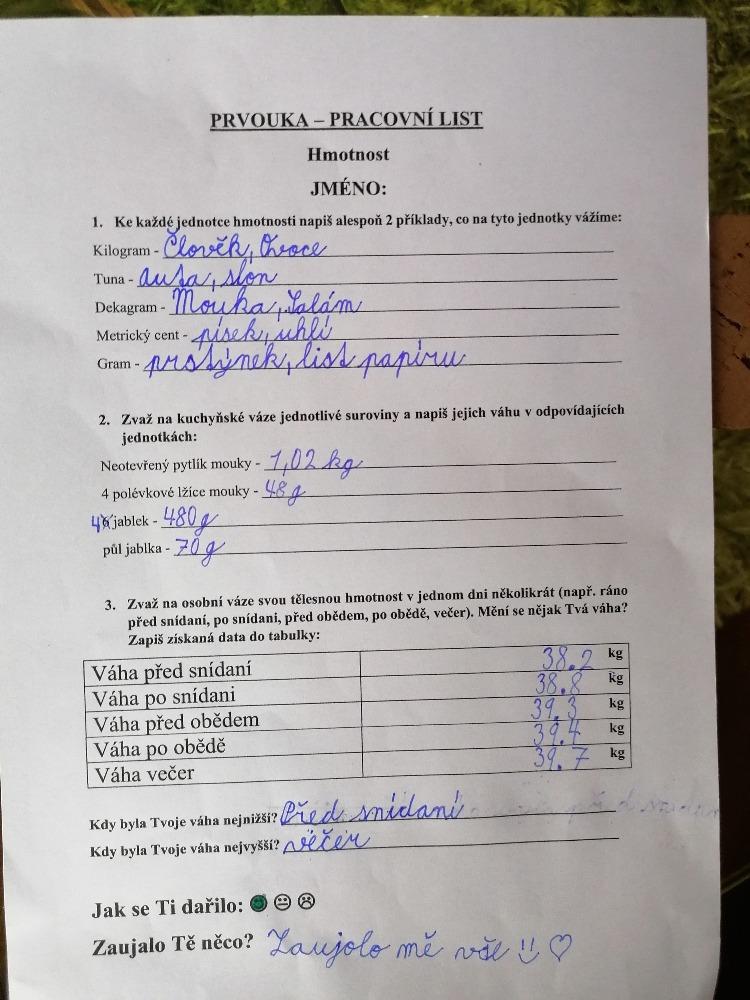 PRVOUKA – PRACOVNÍ LIST
Hmotnost
JMÉNO:
1. Ke každé jednotce hmotnosti napiš alespoň 2 příklady, co na tyto jednotky vážíme:
Kilogram - Člověk, Ovoce
Tuna - auta, slon
Dekagram - Mouka, Salám
Metrický cent - písek, uhlí
Gram - prstýnek, list papíru
2. Zvaž na kuchyňské váze jednotlivé suroviny a napiš jejich váhu v odpovídajících
jednotkách:
Neotevřený pytlík mouky - 1,02 kg
4 polévkové lžíce mouky - 48 g
4 jablek - 480 g
půl jablka - 70 g
3. Zvaž na osobní váze svou tělesnou hmotnost v jednom dni několikrát (např. ráno
před snídaní, po snídani, před obědem, po obědě, večer). Mění se nějak Tvá váha?
Zapiš získaná data do tabulky:
Váha před snídaní 38.2 kg
Váha po snídani 38.8 kg
Váha před obědem 39.3 kg
Váha po obědě 39.4 kg
Váha večer 39.7 kg
Kdy byla Tvoje váha nejnižší? Před snídaní
Kdy byla Tvoje váha nejvyšší? večer
Jak se Ti dařilo:
Zaujalo Tě něco? Zaujolo mě vše